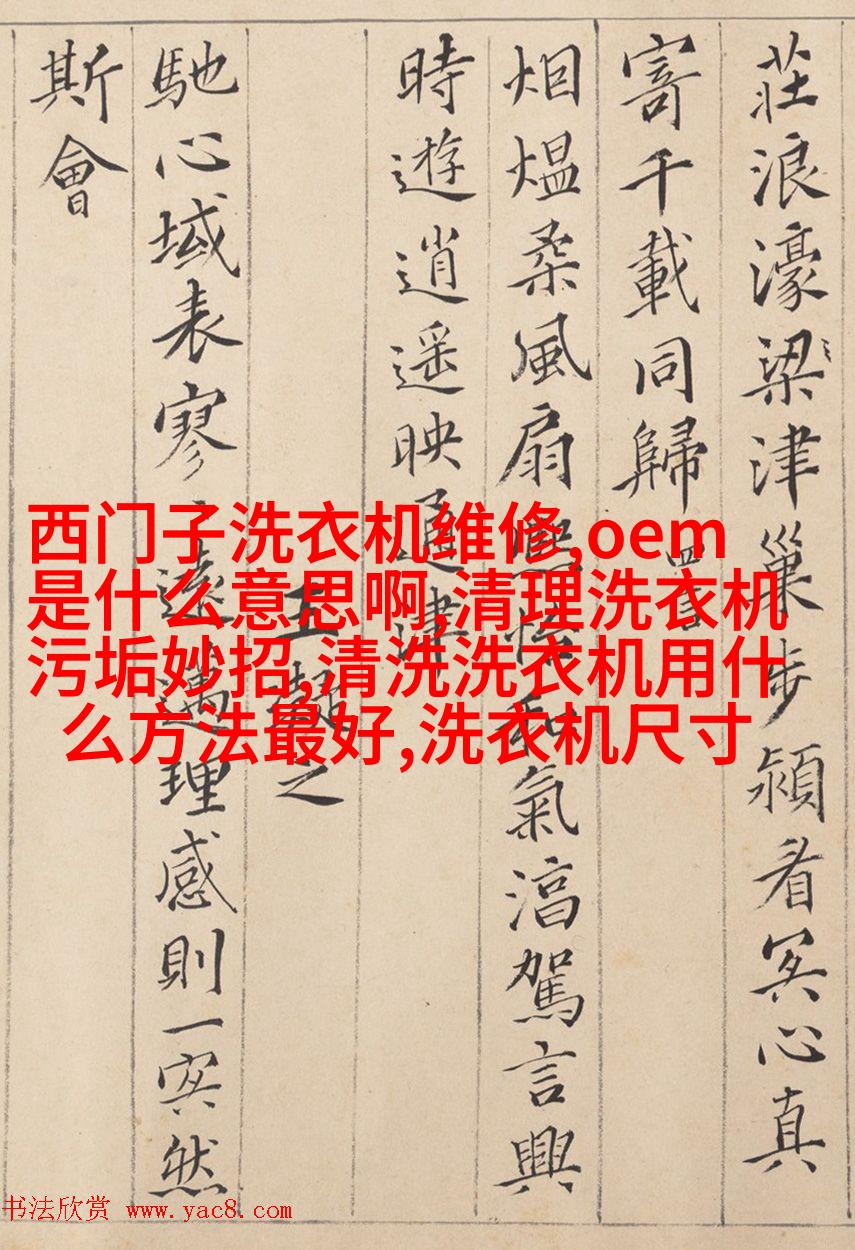 莊浪濠梁津巢步潁看冥心真
寄千載同歸 四言
烟煴柔風扇熙怡和氣淳駕言興
時遊逍遥映通津
王凝之
馳心域表寥〻遠邁理感則一冥然
斯會
西门子洗衣机维修,oem
是什么意思啊,清理洗衣机
污垢妙招,清洗洗衣机用什
么方法最好,洗衣机尺寸
书法欣赏 www.yac8.com